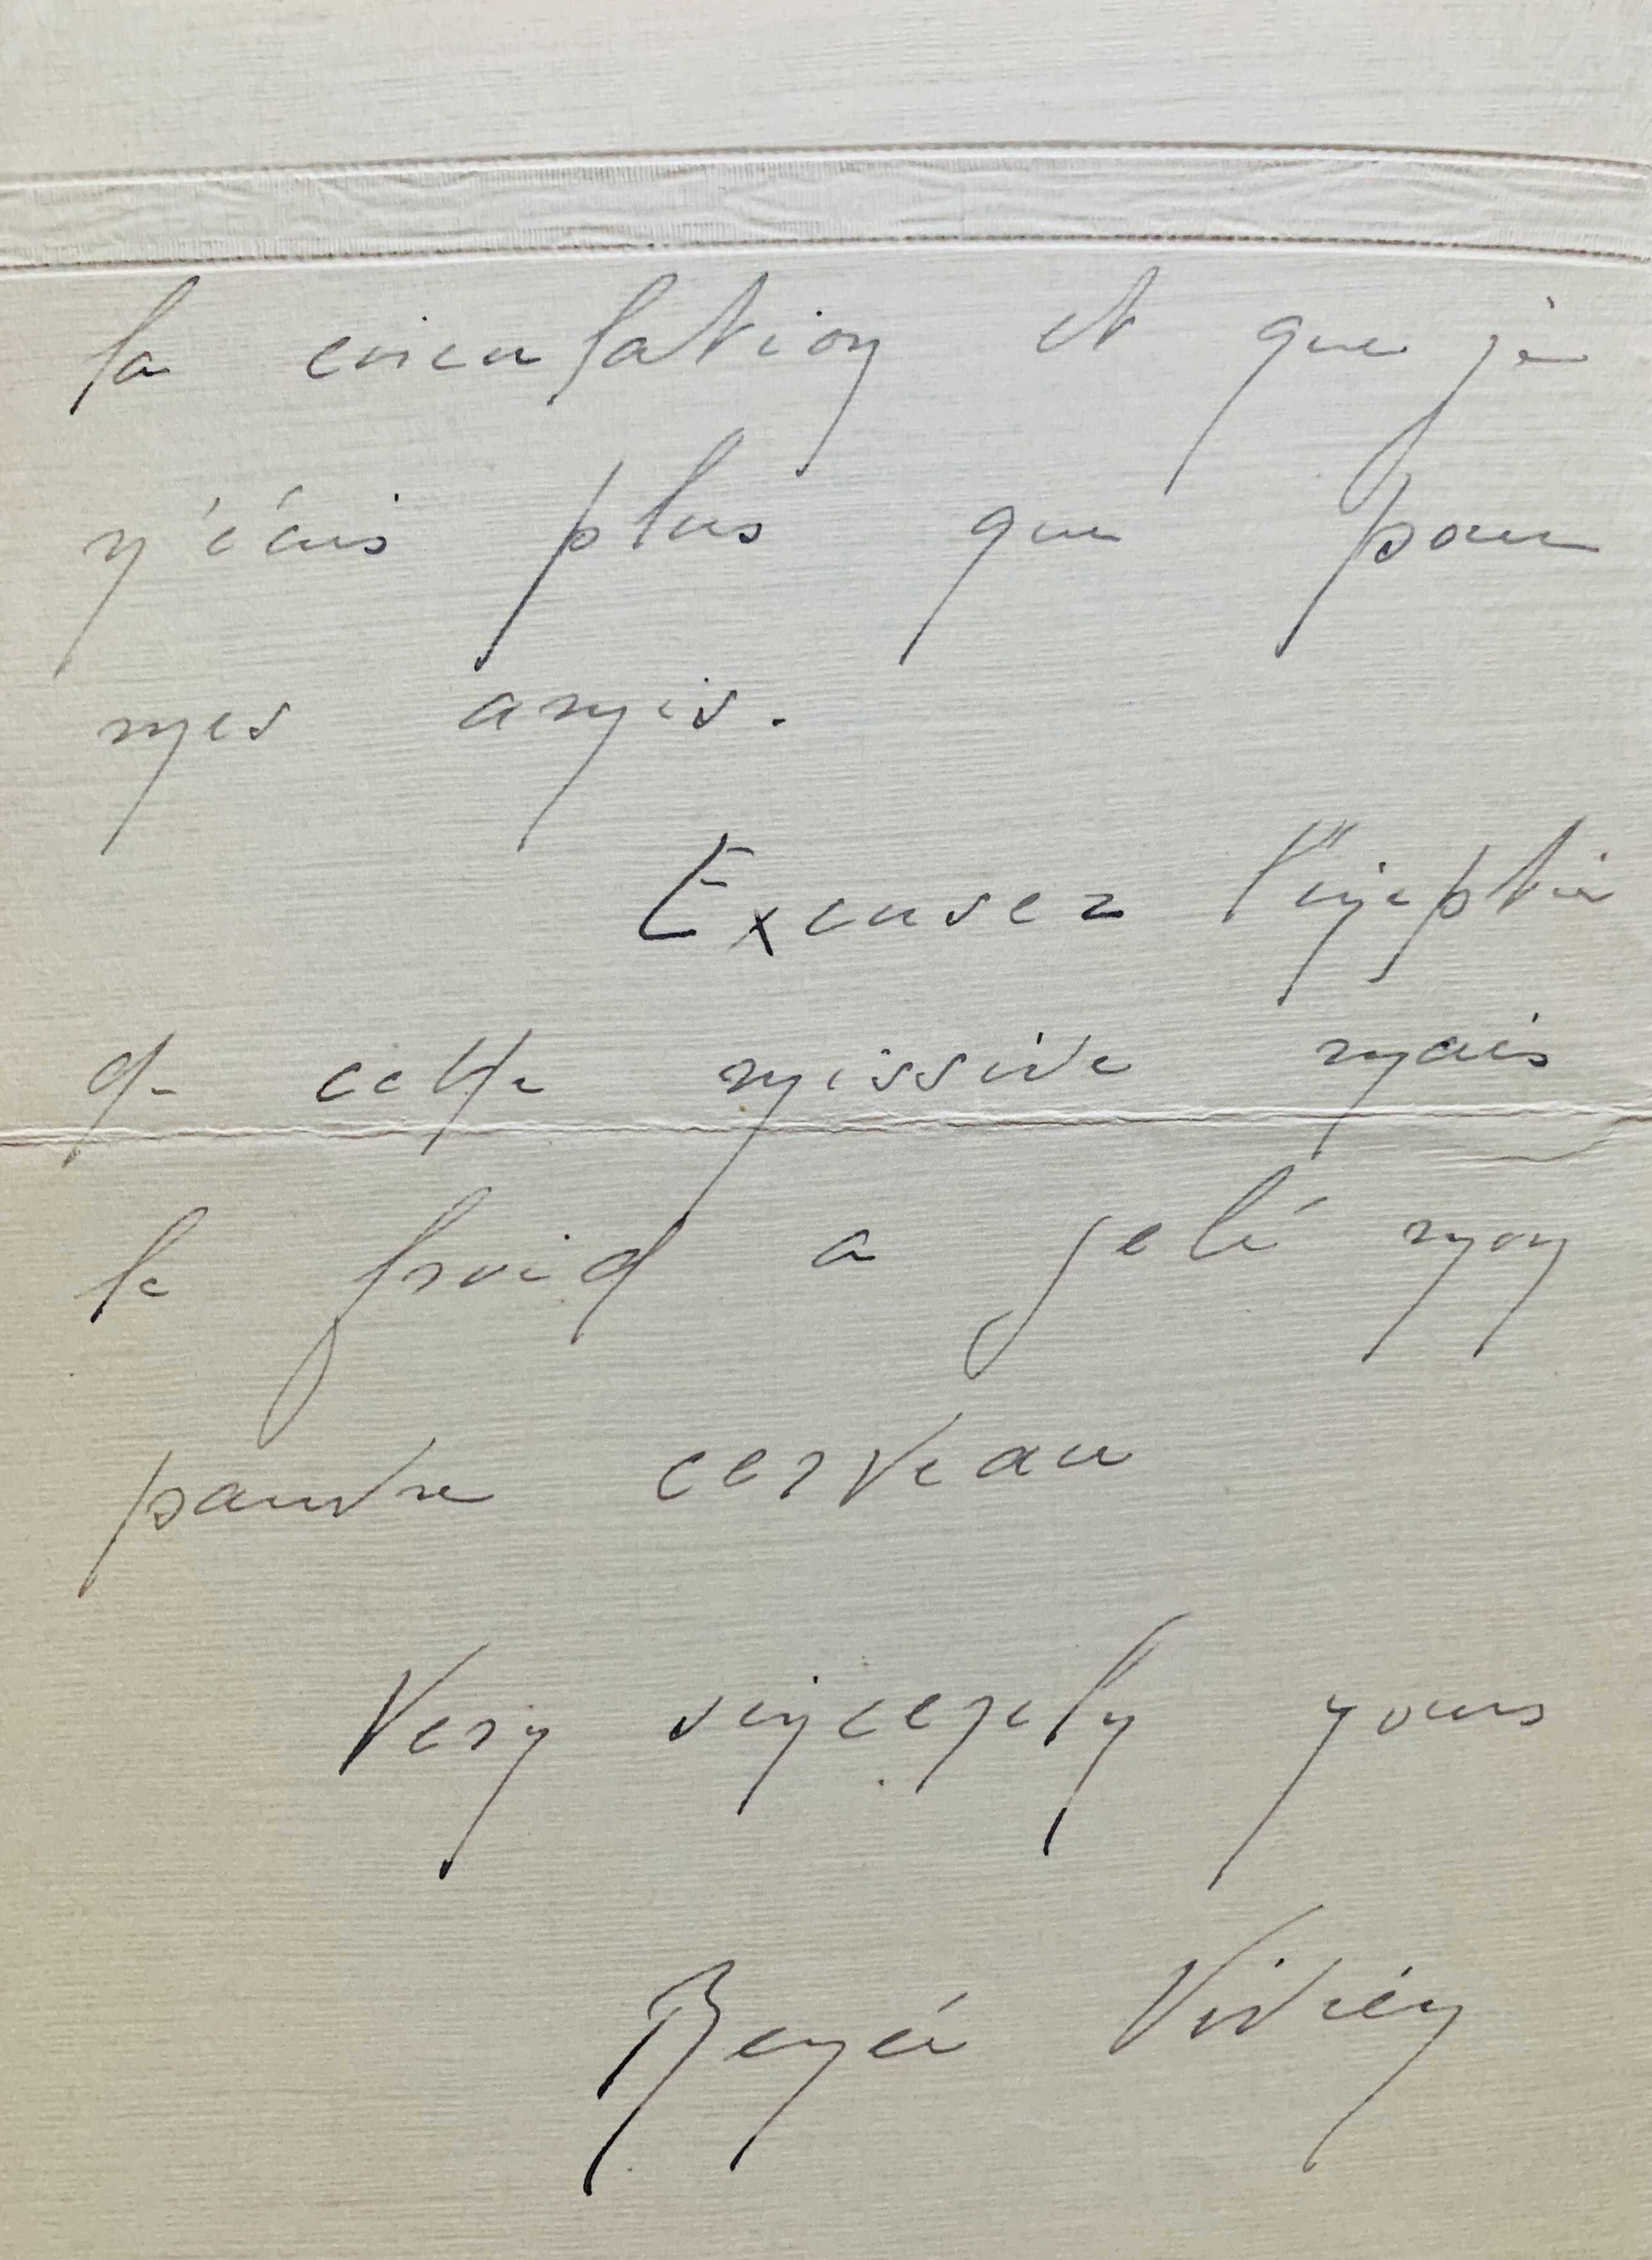 la circulation et que je
n'écris plus que pour
mes amis.
Excusez l'ineptie
de cette missive mais
le froid a gelé mon
pauvre cerveau
Very sincerely yours
Renée Vivien